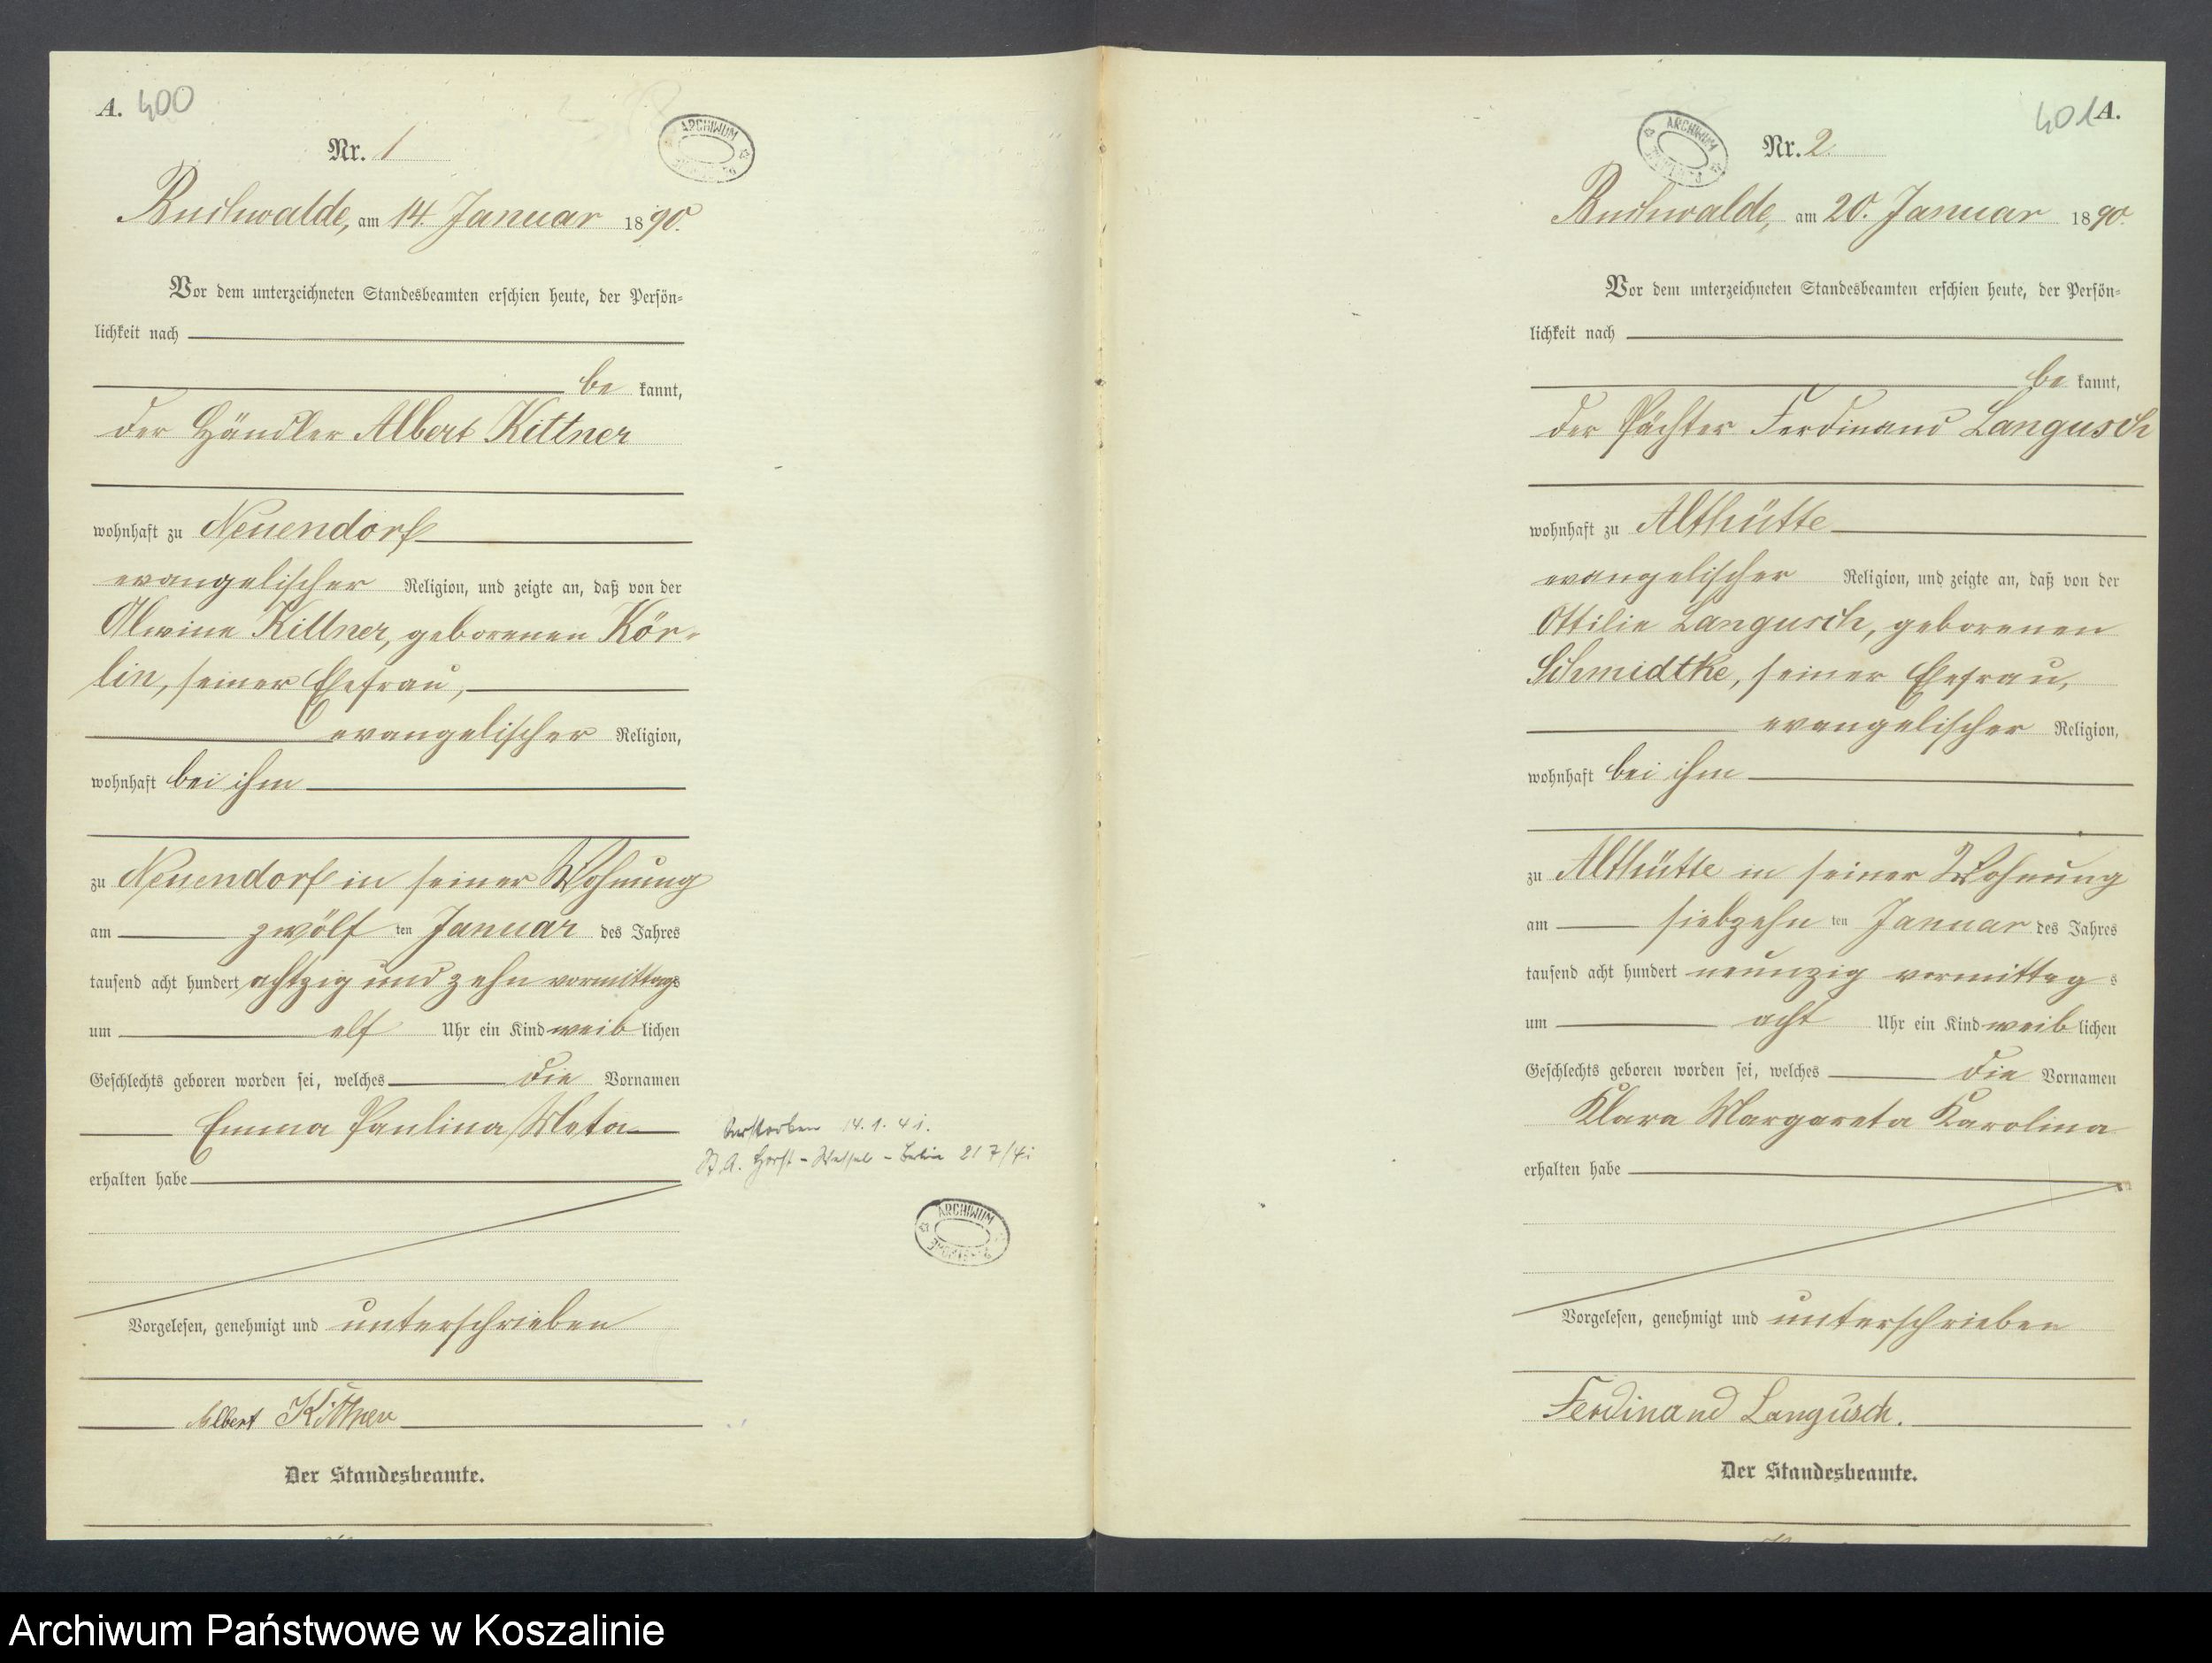 A. 400
ARCHIWUM
Nr. 1
Buchwalde, am 14. Januar 1890.
Vor dem unterzeichneten Standesbeamten erschien heute, der Persön-
lichkeit nach
be kannt,
der Händler Albert Kittner
wohnhaft zu Neuendorf
evangelischer Religion, und zeigte an, daß von der
Alwine Kittner, geborenen Kör-
lin, seiner Ehefrau,
evangelischer Religion,
wohnhaft bei ihm
zu Neuendorf in seiner Wohnung
am zwölf ten Januar des Jahres
tausend acht hundert achtzig und zehn vormittags
um elf Uhr ein Kind weib lichen
Geschlechts geboren worden sei, welches die Vornamen
Emma Paulina Meta
erhalten habe
Verstorben 14.1.41.
St. A. Horst-Wessel-Berlin 217/41
ARCHIWUM
Vorgelesen, genehmigt und unterschrieben
Albert Kittner
Der Standesbeamte.
401 A.
ARCHIWUM
Nr. 2.
Buchwalde, am 20. Januar 1890.
Vor dem unterzeichneten Standesbeamten erschien heute, der Persön-
lichkeit nach
be kannt,
der Pächter Ferdinand Langusch
wohnhaft zu Althütte
evangelischer Religion, und zeigte an, daß von der
Ottilie Langusch, geborenen
Schmidtke, seiner Ehefrau,
evangelischer Religion,
wohnhaft bei ihm
zu Althütte in seiner Wohnung
am siebzehn ten Januar des Jahres
tausend acht hundert neunzig vormittag s
um acht Uhr ein Kind weib lichen
Geschlechts geboren worden sei, welches die Vornamen
Klara Margareta Karolina
erhalten habe
Vorgelesen, genehmigt und unterschrieben
Ferdinand Langusch.
Der Standesbeamte.
Archiwum Państwowe w Koszalinie